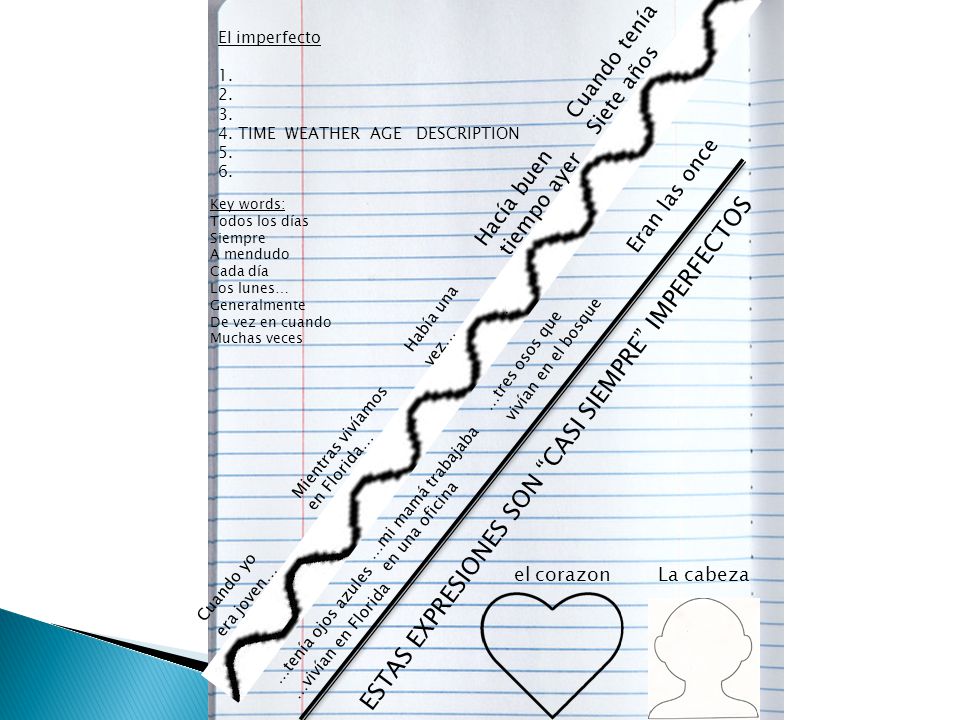 El imperfecto
1.
2.
3.
4. TIME WEATHER AGE DESCRIPTION
5.
6.
Key words:
Todos los días
Siempre
A mendudo
Cada día
Los lunes…
Generalmente
De vez en cuando
Muchas veces
Cuando tenía
Siete años
Hacía buen
tiempo ayer
Eran las once
Había una
vez…
…tres osos que
vivían en el bosque
Mientras vivíamos
en Florida…
…mi mamá trabajaba
en una oficina
Cuando yo
era joven…
…tenía ojos azules
…vivían en Florida
ESTAS EXPRESIONES SON “CASI SIEMPRE” IMPERFECTOS
el corazon
La cabeza